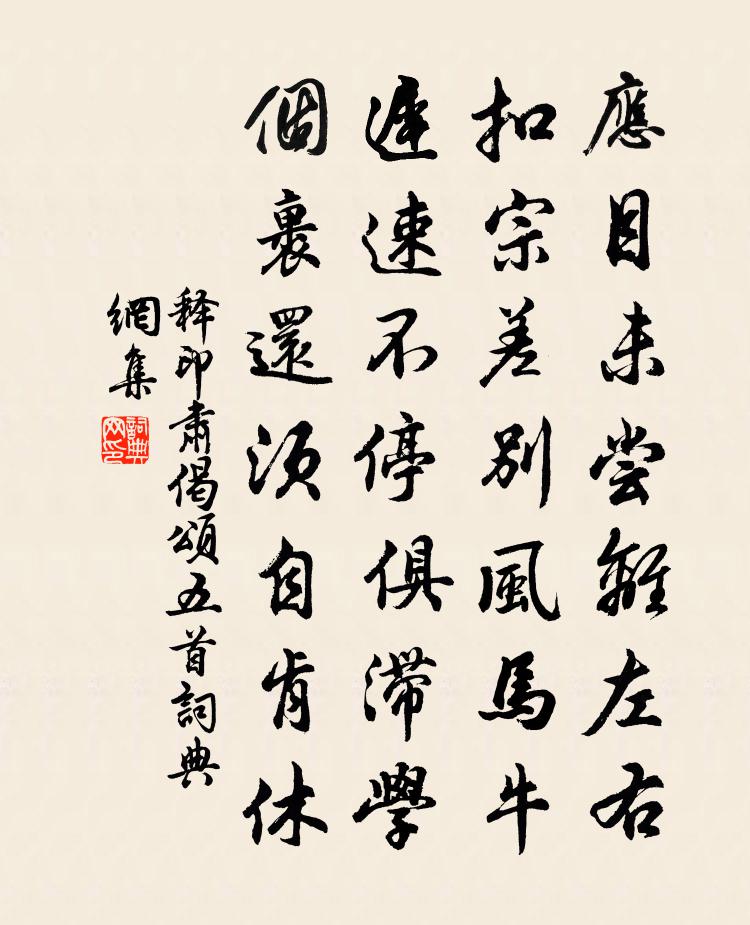 應目未嘗離左右
扣宗差別風馬牛
遲速不停俱滯學
個裹還須自肯休
释印肅偈頌五首詞典
網集
詞典
网印